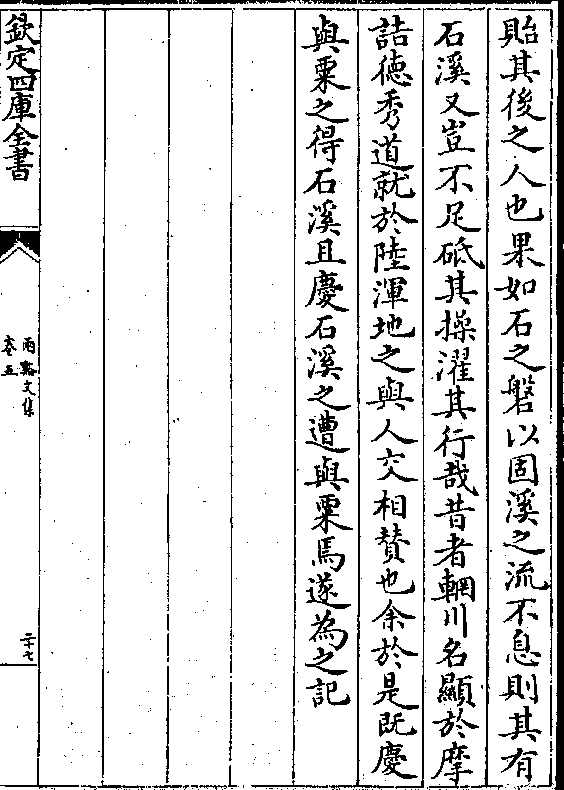 貽其後之人也果如石之磐以固溪之流不息則其有
石溪又豈不足砥其操濯其行哉昔者輞川名顯於摩
詰徳秀道就於陸渾地之與人交相賛也余於是既慶
與粟之得石溪且慶石溪之遭與粟焉遂為之記
欽定四庫全書
兩谿文集
卷五
二十七